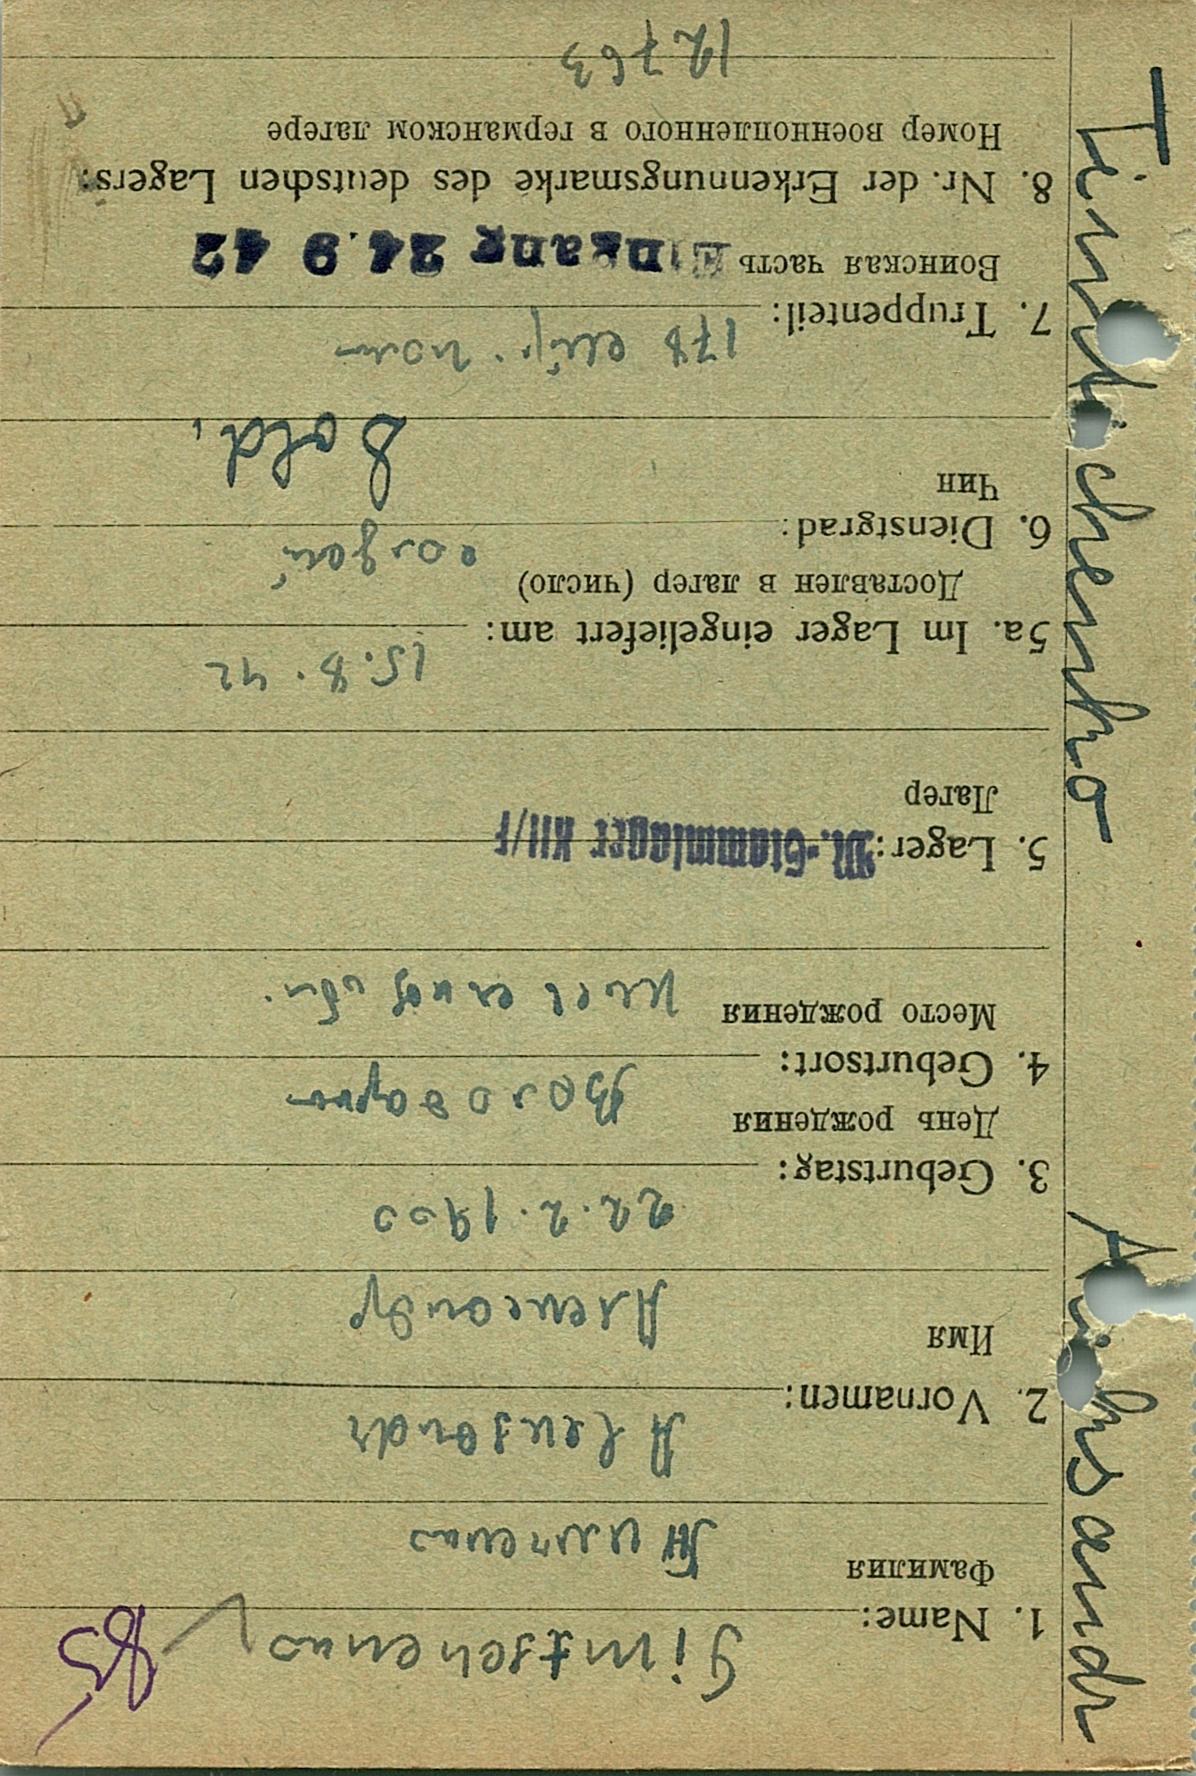 1. Name: Timtschenko
Фамилия Тимченко
2. Vornamen: Alexandr
Имя Александр
3. Geburtstag: 22.2.1900
День рождения
4. Geburtsort:
Место рождения
5. Lager: M.-Stammlager XII/F
Лагер
5a. Im Lager eingeliefert am: 15.8.42
Доставлен в лагер (число)
6. Dienstgrad:
Чин Sold.
7. Truppenteil: 178
Воинская часть Eingang 24.9 42
8. Nr. der Erkennungsmarke des deutschen Lagers:
Номер военнопленного в германском лагере
12763
85